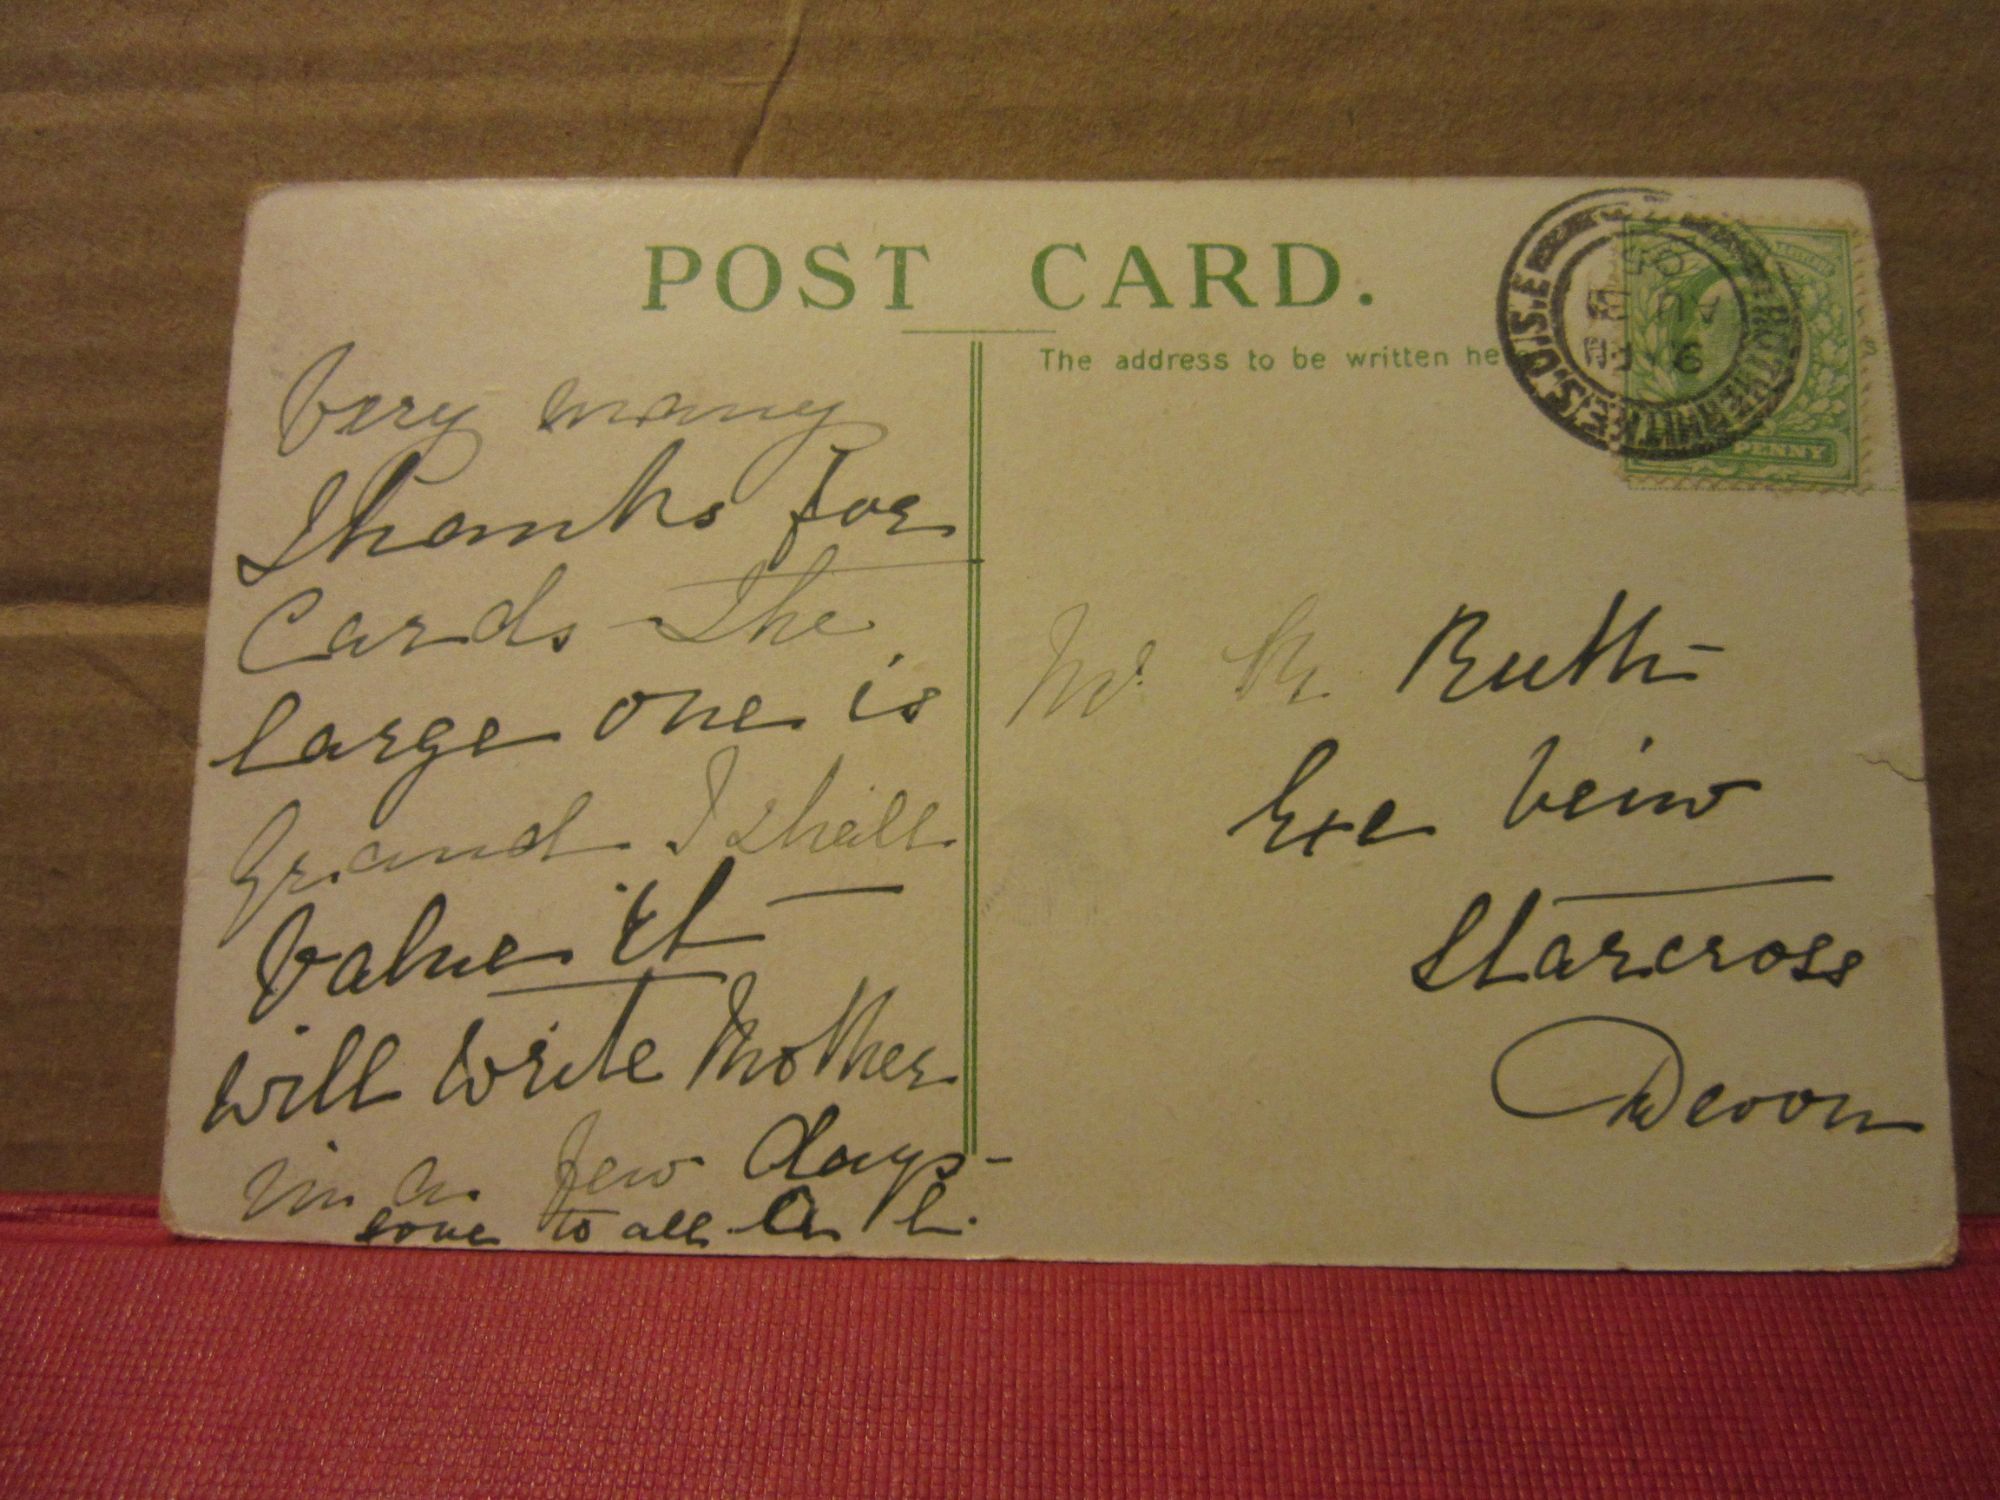 POST CARD.
The address to be written he
Very many
Thanks for
Cards The
large one is
Grand I shall
Value it —
will write Mother
in a few days —
love to all
Ruth
Exe Veiw
Starcross
Devon
ROTHERHITHE S.O. S.E
AU
05
PENNY